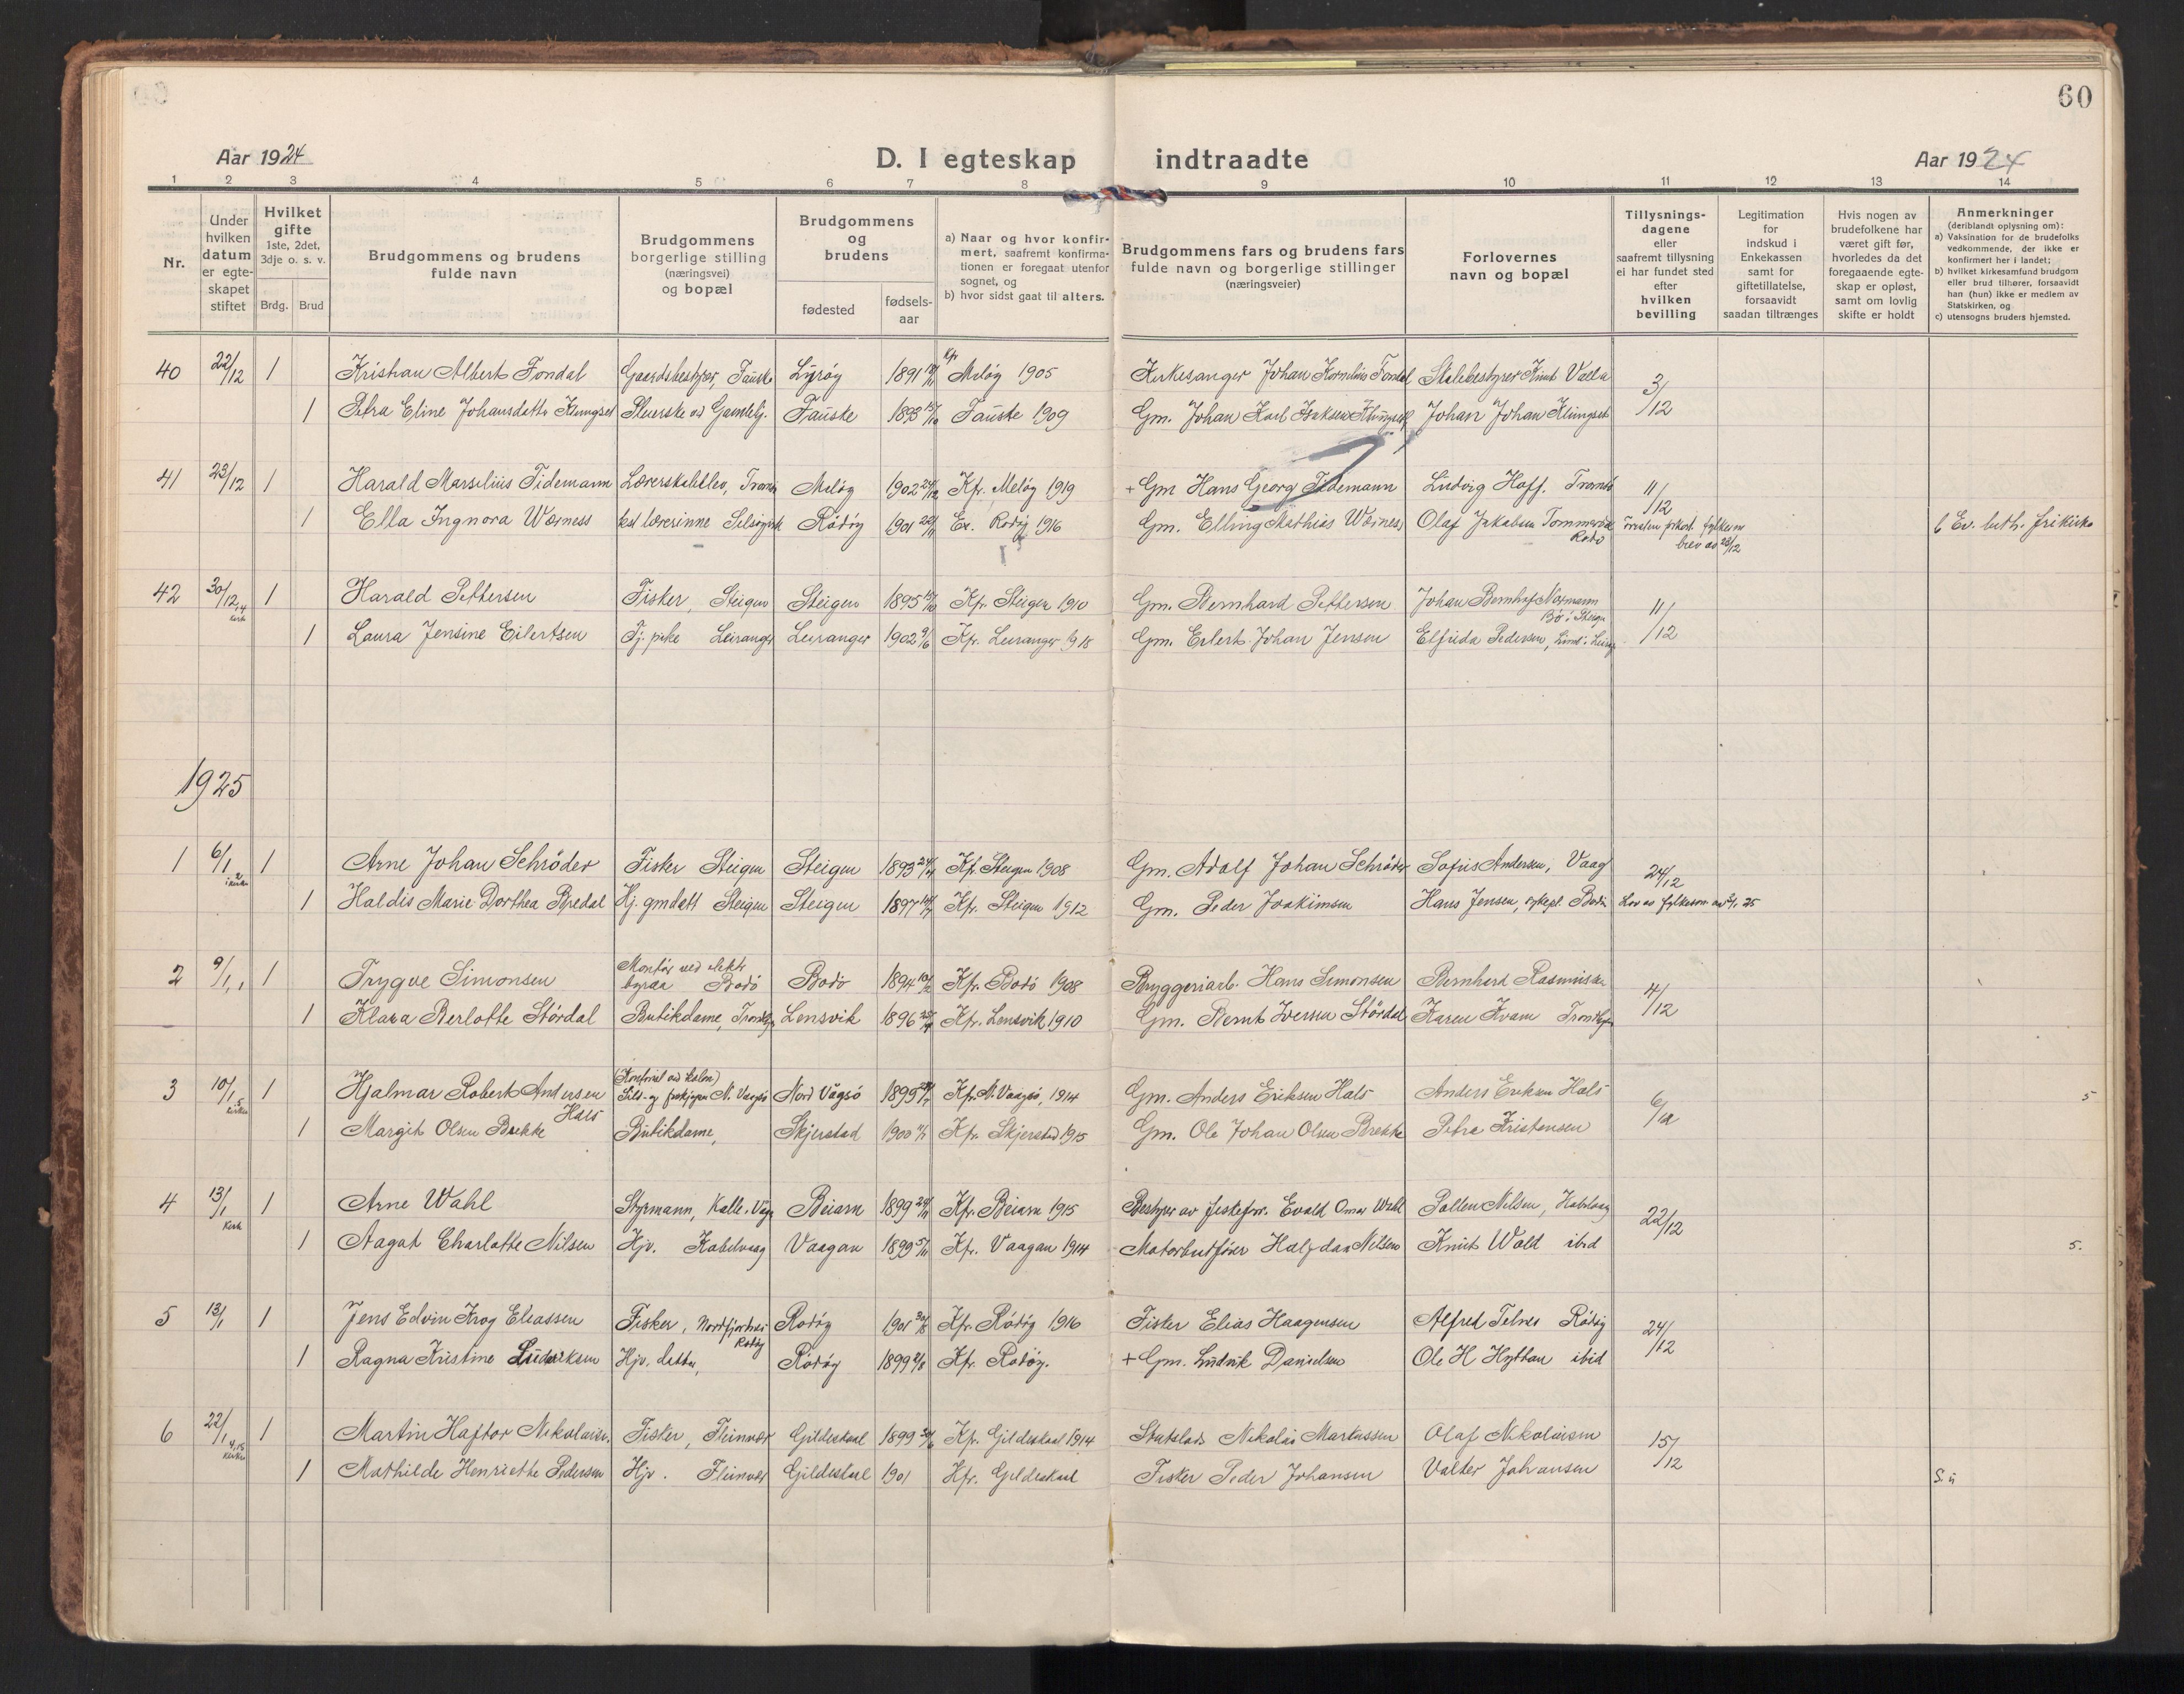 60
Aar 1924
D. I egteskap indtraadte
Aar 1924
1 2 3 4 5 6 7 8 9 10 11 12 13 14
Nr.
Under hvilken datum er egteskapet stiftet
Hvilket gifte 1ste, 2det, 3dje o. s. v.
Brdg. Brud
Brudgommens og brudens fulde navn
Brudgommens borgerlige stilling (næringsvei) og bopæl
Brudgommens og brudens
fødested
fødselsaar
a) Naar og hvor konfirmert, saafremt konfirmationen er foregaat utenfor sognet, og
b) hvor sidst gaat til alters.
Brudgommens fars og brudens fars fulde navn og borgerlige stillinger (næringsveier)
Forlovernes navn og bopæl
Tillysningsdagene eller saafremt tillysning ei har fundet sted efter hvilken bevilling
Legitimation for indskud i Enkekassen samt for giftetillatelse, forsaavidt saadan tiltrænges
Hvis nogen av brudefolkene har været gift før, hvorledes da det foregaaende egteskap er opløst, samt om lovlig skifte er holdt
Anmerkninger (deriblandt oplysning om):
a) Vaksination for de brudefolks vedkommende, der ikke er konfirmert her i landet;
b) hvilket kirkesamfund brudgom eller brud tilhører, forsaavidt han (hun) ikke er medlem av Statskirken, og
c) utensogns bruders hjemsted.
40 22/12 1 Kristian Albert Fondal Gaardsbestyrer, Fauske Lurøy 1891 Kfr. Meløy 1905 Kirkesanger Johan Kornelius Fondal Knut Valla 3/12
1 Petra Eline Johansdatter Klungset Fauske 1893 Fauske 1909 Gm. Johan Karl Isaksen Klungset Johan Johan Klungset
41 23/12 1 Harald Marselius Tidemann Lærerskoleelev, Tromsø Meløy 1902 Kfr. Meløy 1919 + Gm Hans Georg Tidemann Ludvig Hoff. Tromsö 11/12
1 Ella Ingnora Wærness lærerinne Rödöy 1901 Rodøy 1916 Gm. Elling Mathias Wærnes Olaf Jakobsen Rödö brev av 23/12 b Ev. luth. frikirke
42 30/12 1 Harald Pettersen Fisker, Steigen Steigen 1895 Kfr. Steigen 1910 Gm. Bernhard Pettersen Johan Bernhof Normann Bö i Steigen 11/12
1 Laura Jensine Eilertsen Tj. pike Leiranger Leiranger 1902 Kfr. Leiranger 1918 Gm. Eilert Johan Jensen Elfrida Pedersen,
1925
1 6/1 1 Arne Johan Schröder Fisker Steigen Steigen 1893 Kfr. Steigen 1908 Gm. Adolf Johan Schröder Sofus Andersen, Vaag 24/12
1 Haldis Marie Dorthea Bredal Hj. gmdatt Steigen Steigen 1897 Kfr. Steigen 1912 Gm. Peder Joakimsen Hans Jensen, Bodin
2 9/1 1 Trygve Simonsen Montør ved elektr. byraa Bodö Bodö 1894 Kfr. Bodö 1908 Bryggeriarb. Hans Simonsen Bernhard Rasmussen 4/12
1 Klara Berlotte Stördal Butikdame, Trondhjem Lensvik 1896 Kfr. Lensvik 1910 Gm. Bernt Iversen Stördal Karen Kvam Trondhjem
3 10/1 1 Hjalmar Robert Andersen Hals N. Vaagsö Nord Vågsö 1899 Kfr. N. Vaagsö, 1914 Gm. Anders Eriksen Hals Anders Eriksen Hals 6/12 5
1 Margit Olsen Brekke Butikdame, Skjerstad 1900 Kfr. Skjerstad 1915 Gm. Ole Johan Olsen Brekke Petra Kristensen
4 13/1 1 Arne Wahl Styrmann, Kalle i Vågan Beiarn 1899 Kfr. Beiarn 1915 Bestyrer av Evald Omar Wahl Nilsen, Kabelvaag 22/12
1 Aagot Charlotte Nilsen Hjv. Kabelvaag Vaagan 1899 Kfr. Vaagan 1914 Motorbutfører Halfdan Nilsen Knut Wold ibid 5.
5 13/1 1 Jens Edvin Krog Eliassen Fisker, Rödöy Rodöy 1901 Kfr. Rödöy 1916 Fisker Elias Haagensen Alfred Telnes Rödöy 24/12
1 Ragna Kristine Ludviksen Hjv. datter, Rödöy 1899 Kfr. Rodöy. + Gm. Ludvik Danielsen Ole H Hyttan ibid
6 22/1 1 Martin Haftor Nikolaisen Fisker, Fleinvær Gildeskaal 1899 Kfr. Gildeskaal 1914 Nikolai Markussen Olaf Nikolaisen 15/12
1 Mathilde Henriette Pedersen Hjv. Fleinvær Gildeskaal 1901 Kfr. Gildeskaal Fisker Peder Johansen Valter Johansen